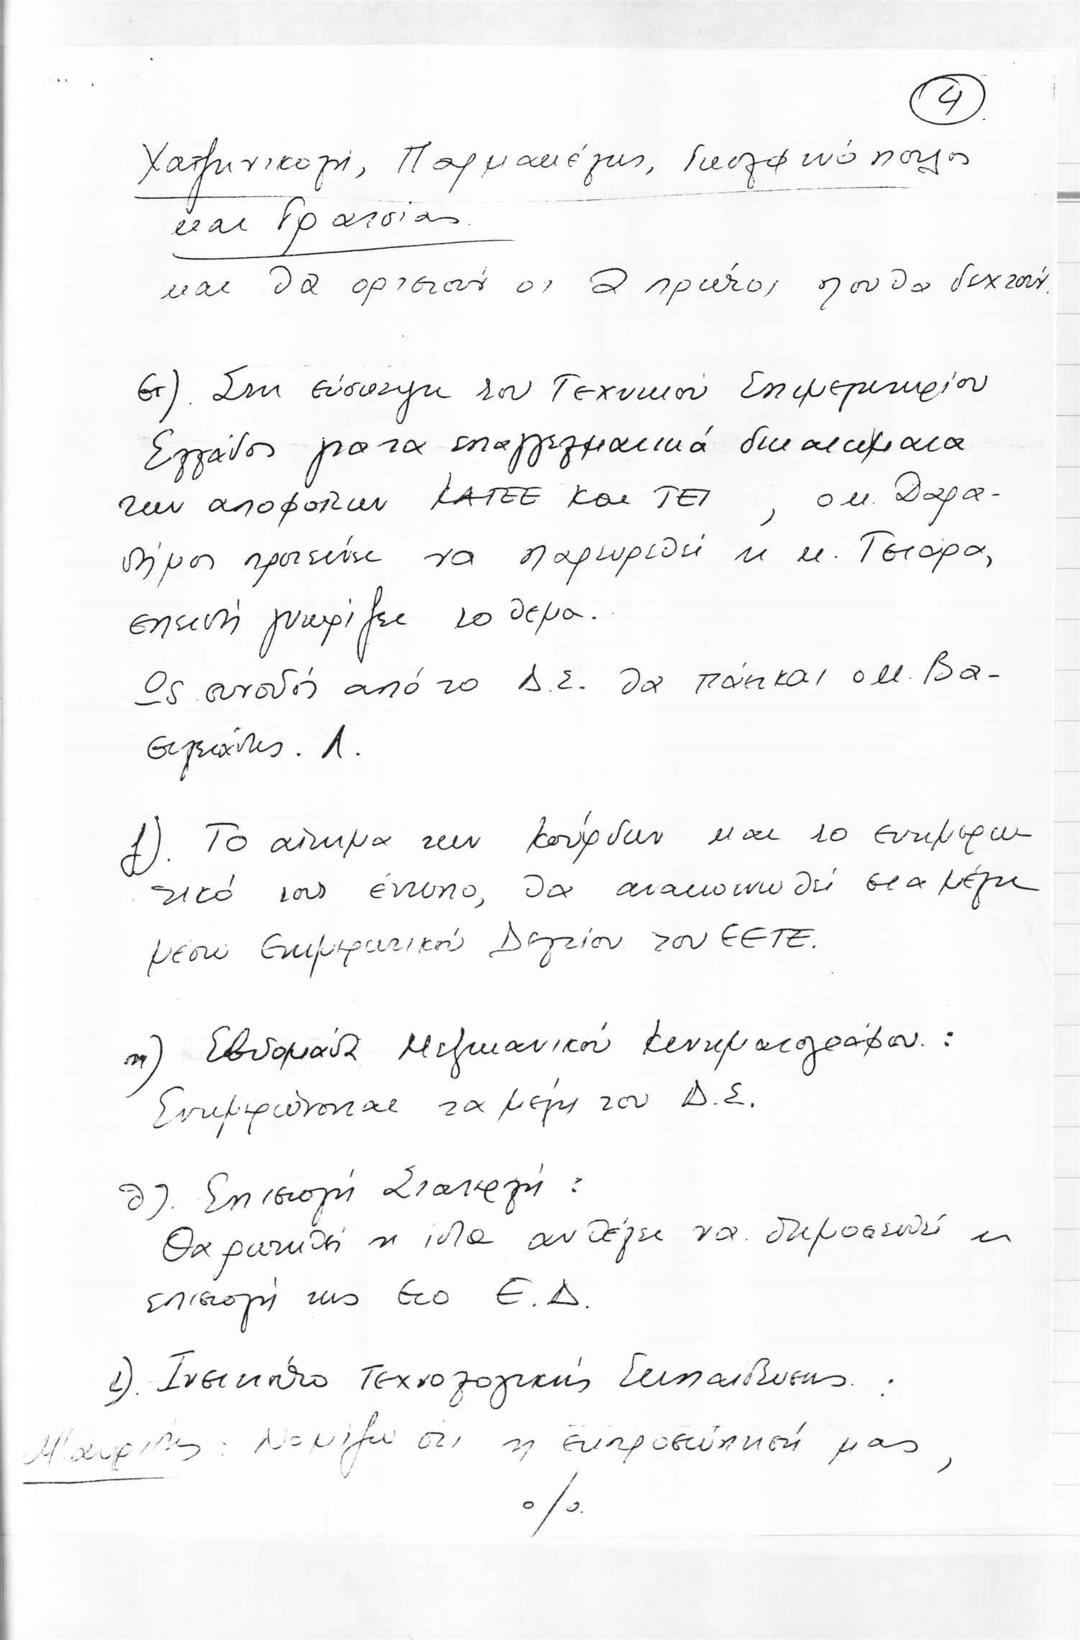 4
Χατζηνικολή, Παρμακέλης,
και Γρατσίας.
και θα οριστούν οι 2 πρώτοι που θα δεχτούν.
στ). Στη σύσκεψη του Τεχνικού Επιμελητηρίου
Ελλάδος για τα επαγγελματικά δικαιώματα
των αποφοίτων ΚΑΤΕΕ και ΤΕΙ, ο κ. Παρα-
δήμος προτείνει να παρευρεθεί η κ. Τσιάρα,
επειδή γνωρίζει το θέμα.
Ως συνοδός από το Δ.Σ. θα πάει και ο κ. Βα-
σιλειάδης. Λ.
ζ). Το αίτημα των Κούρδων και το ενημερω-
τικό τους έντυπο, θα ανακοινωθεί στα μέλη
μέσω Ενημερωτικού Δελτίου του ΕΕΤΕ.
η) Εβδομάδα Μεξικανικού Κινηματογράφου:
Ενημερώνονται τα μέλη του Δ.Σ.
θ). Επιστολή Σιατερλή:
Θα ρωτηθεί η ίδια αν θέλει να δημοσιευθεί η
επιστολή της στο Ε.Δ.
ι). Ινστιτούτο Τεχνολογικής Εκπαίδευσης:
Νομίζω ότι η εκπροσώπησή μας,
./.